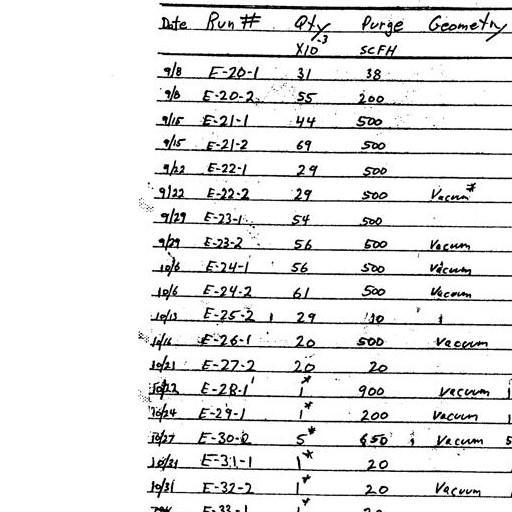 Date Run # Qty Purge Geometry
X10⁻³ SCFH
9/8 E-20-1 31 38
9/8 E-20-2 55 200
9/15 E-21-1 44 500
9/15 E-21-2 69 500
9/22 E-22-1 29 500
9/22 E-22-2 29 500 Vacuum*
9/29 E-23-1 54 500
9/29 E-23-2 56 500 Vacuum
10/6 E-24-1 56 500 Vacuum
10/6 E-24-2 61 500 Vacuum
10/13 E-25-2 29 10
10/16 E-26-1 20 500 Vacuum
10/21 E-27-2 20 20
10/22 E-28-1 1* 900 Vacuum
10/24 E-29-1 1* 200 Vacuum
10/27 E-30-2 5* 650 Vacuum 5
10/31 E-31-1 1* 20
10/31 E-32-2 1* 20 Vacuum
E-33-1